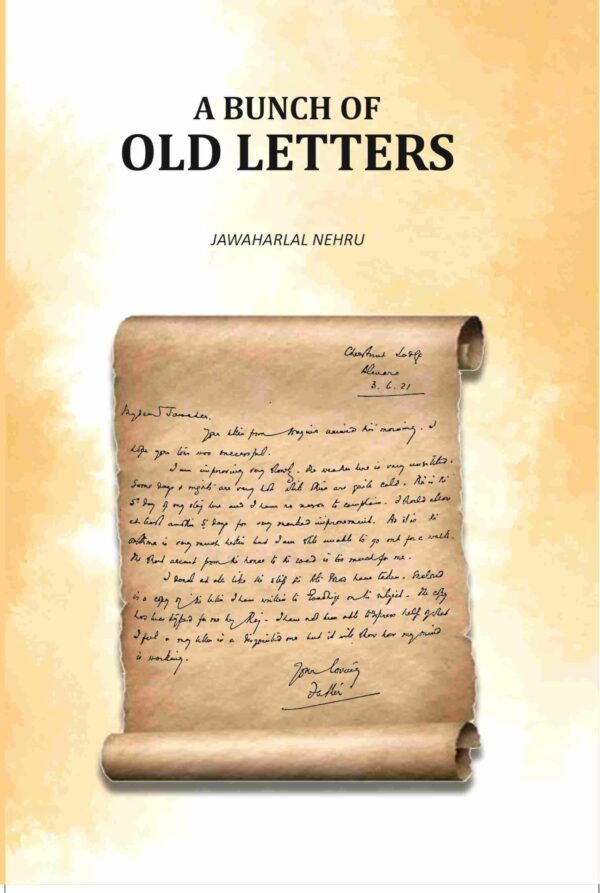 A BUNCH OF
OLD LETTERS
JAWAHARLAL NEHRU
Chestnut Lodge
Almora
3.6.21
My dear Jawahar,
Your letter from received this morning. I
hope your was successful.
I am improving very slowly. The weather here is very unsettled.
Some days & nights are very hot while are quite cold. This is the
5th day of my stay here and I have no reason to complain. I should allow
at least another 5 days for very marked improvement. As it is the
asthma is very much better but I am still unable to go out for a walk.
The short ascent from the house to the road is too much for me.
I do not at all like the step the have taken. Enclosed
is a copy of the letter I have written to Gandhiji on the subject. The copy
has been typed for me by Raj. I have not been able to express half of what
I feel & my letter is a disjointed one but it will show how my mind
is working.
Your loving
Father